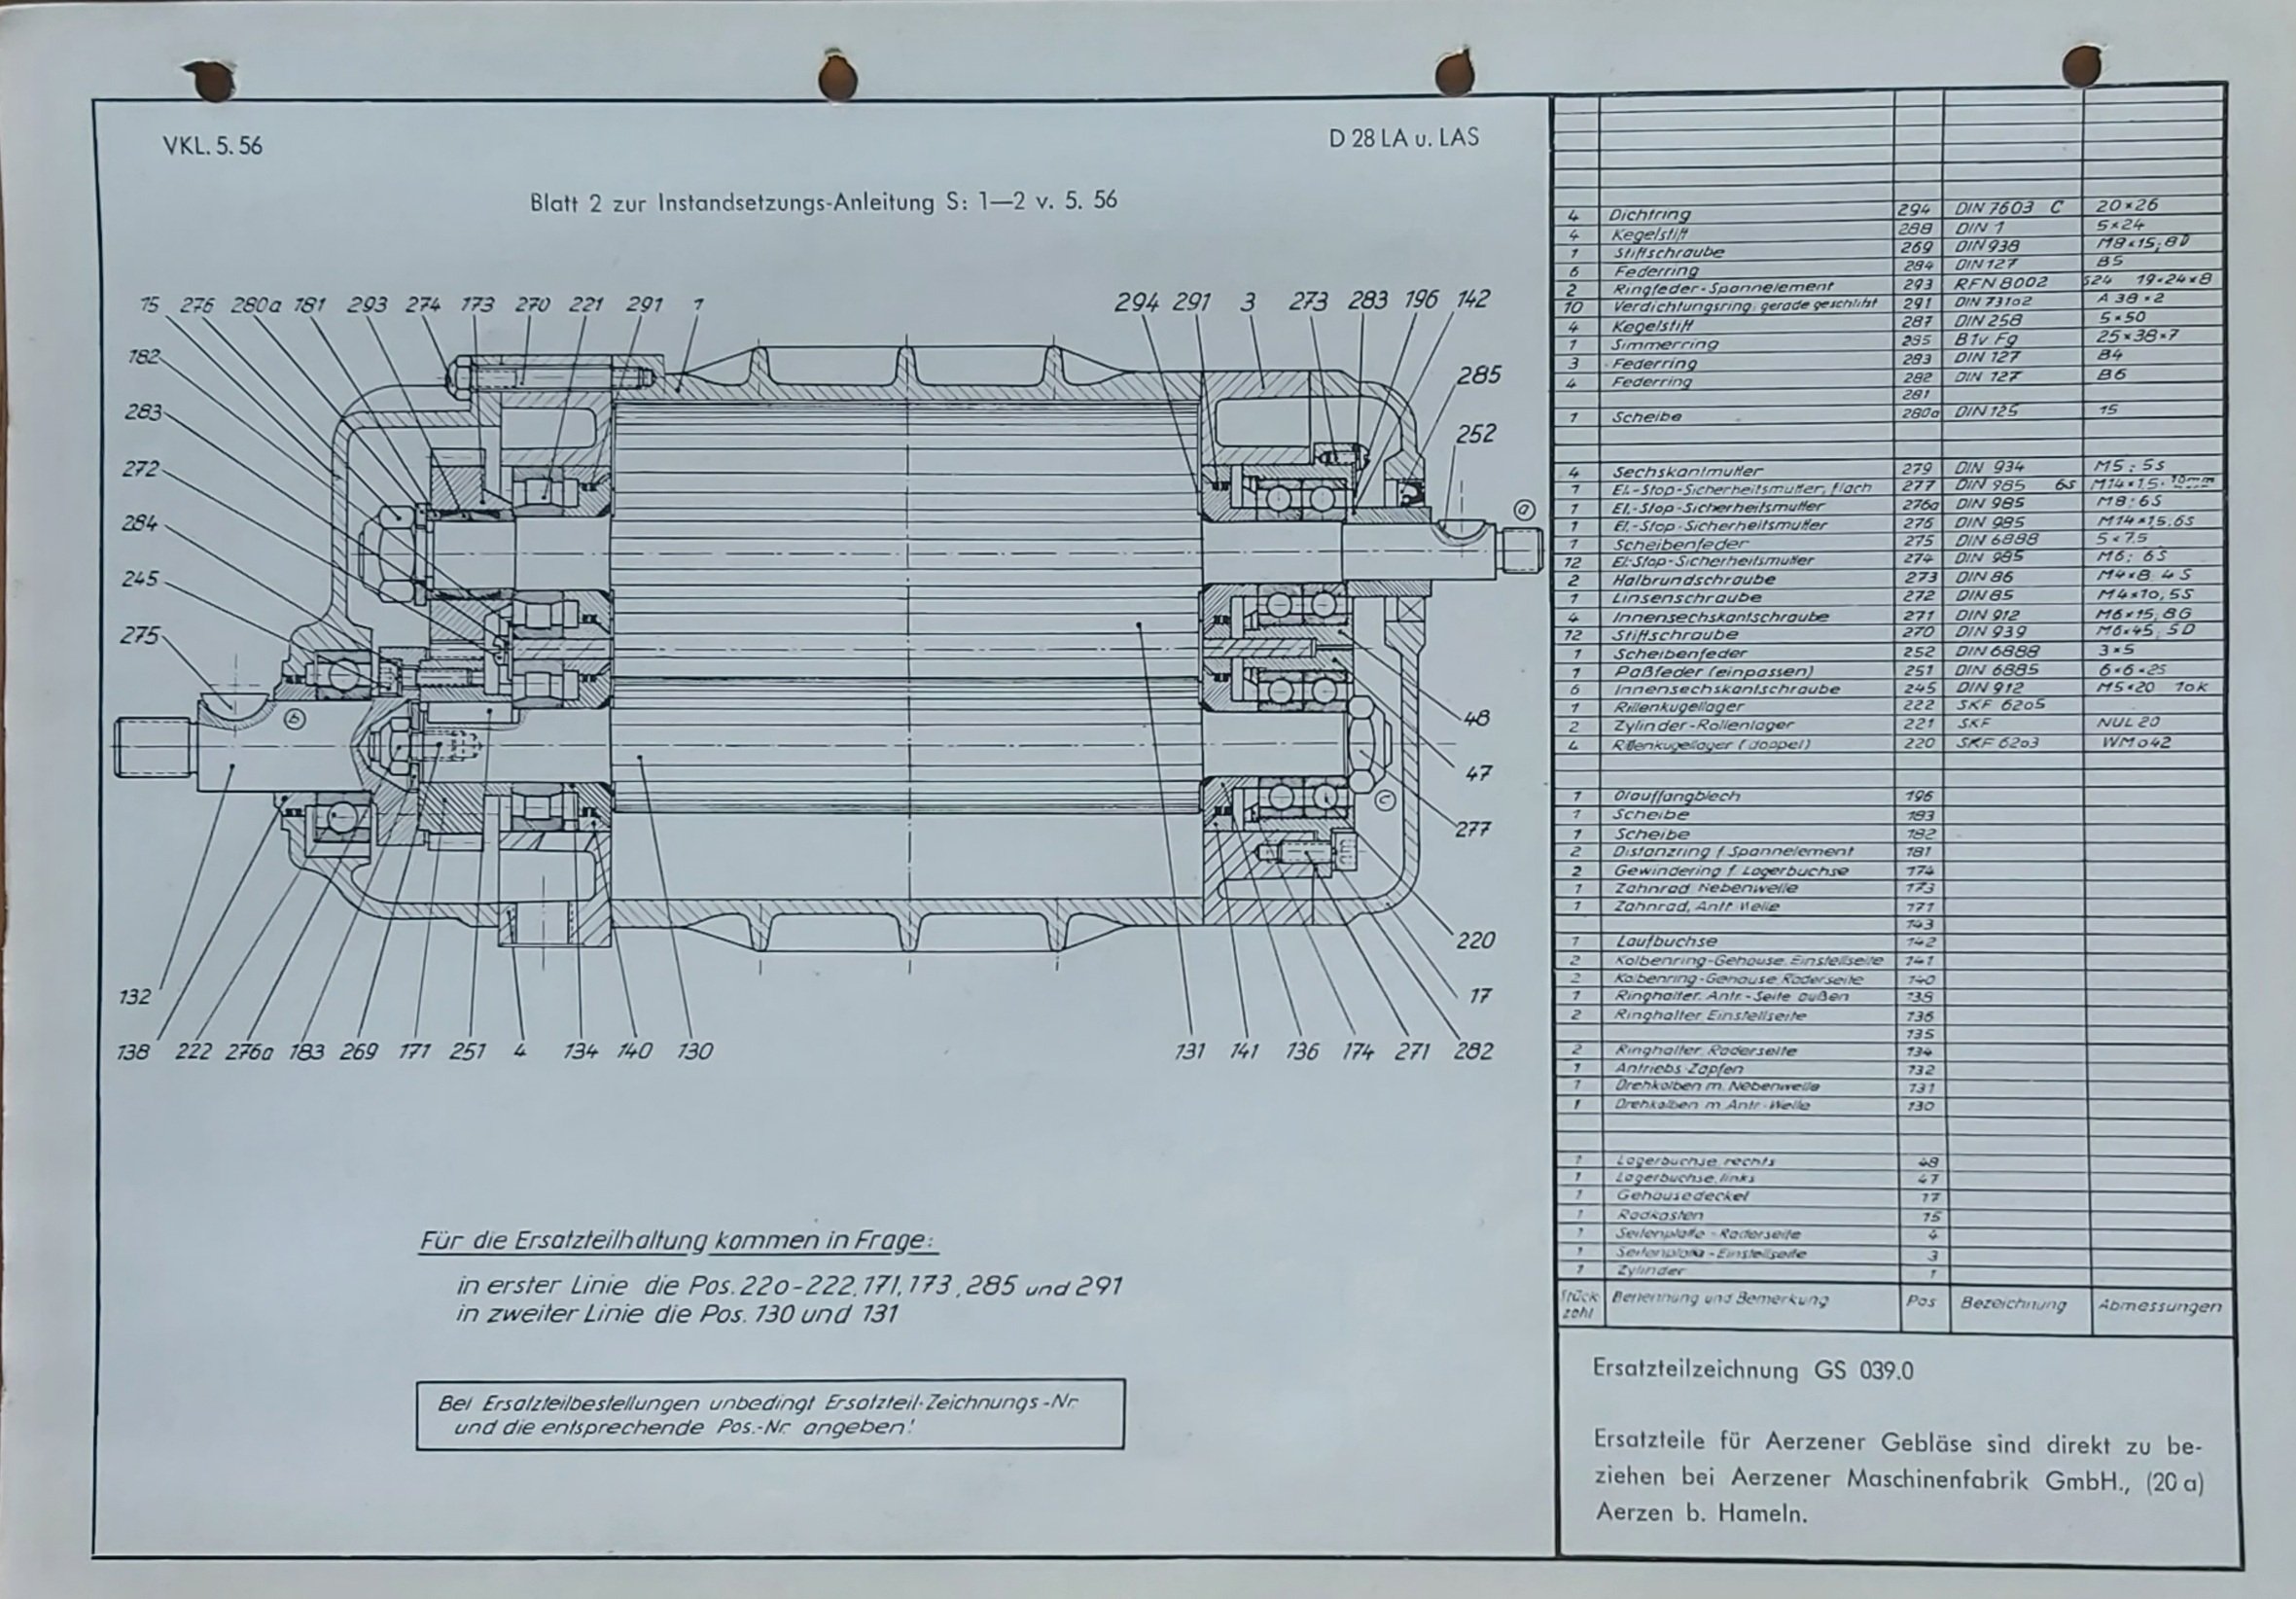 VKL. 5. 56
D 28 LA u. LAS
Blatt 2 zur Instandsetzungs-Anleitung S: 1—2 v. 5. 56
15 276 280a 181 293 274 173 270 221 291 1
294 291 3 273 283 196 142
182
285
283
252
272
a
284
245
275
48
b
47
c
277
220
132
17
138 222 276a 183 269 171 251 4 134 140 130
131 141 136 174 271 282
Für die Ersatzteilhaltung kommen in Frage:
in erster Linie die Pos. 220-222, 171, 173, 285 und 291
in zweiter Linie die Pos. 130 und 131
Bei Ersatzteilbestellungen unbedingt Ersatzteil-Zeichnungs-Nr
und die entsprechende Pos.-Nr. angeben!
4 Dichtring 294 DIN 7603 C 20×26
4 Kegelstift 288 DIN 1 5×24
1 Stiftschraube 269 DIN 938 M8×15; 8D
6 Federring 284 DIN 127 B5
2 Ringfeder-Spannelement 293 RFN 8002 S24 19×24×8
10 Verdichtungsring, gerade geschlitzt 291 DIN 73102 A 38×2
4 Kegelstift 287 DIN 258 5×50
1 Simmerring 285 B1v Fg 25×38×7
3 Federring 283 DIN 127 B4
4 Federring 282 DIN 127 B6
281
1 Scheibe 280a DIN 125 15
4 Sechskantmutter 279 DIN 934 M5; 5S
1 El.-Stop-Sicherheitsmutter, flach 277 DIN 985 6S M14×1,5. 10mm
1 El.-Stop-Sicherheitsmutter 276a DIN 985 M8; 6S
1 El.-Stop-Sicherheitsmutter 276 DIN 985 M14×1,5.6S
1 Scheibenfeder 275 DIN 6888 5×7,5
12 El.-Stop-Sicherheitsmutter 274 DIN 985 M6; 6S
2 Halbrundschraube 273 DIN 86 M4×8 4S
1 Linsenschraube 272 DIN 85 M4×10, 5S
4 Innensechskantschraube 271 DIN 912 M6×15, 8G
12 Stiftschraube 270 DIN 939 M6×45, 5D
1 Scheibenfeder 252 DIN 6888 3×5
1 Paßfeder (einpassen) 251 DIN 6885 6×6×25
6 Innensechskantschraube 245 DIN 912 M5×20 10K
1 Rillenkugellager 222 SKF 6205
2 Zylinder-Rollenlager 221 SKF NUL 20
4 Rillenkugellager (doppel) 220 SKF 6203 WM042
1 Ölauffangblech 196
1 Scheibe 183
1 Scheibe 182
2 Distanzring f. Spannelement 181
2 Gewindering f. Lagerbuchse 174
1 Zahnrad Nebenwelle 173
1 Zahnrad, Antr. Welle 171
143
1 Laufbuchse 142
2 Kolbenring-Gehäuse, Einstellseite 141
2 Kolbenring-Gehäuse, Räderseite 140
1 Ringhalter, Antr.-Seite außen 138
2 Ringhalter, Einstellseite 136
135
2 Ringhalter, Räderseite 134
1 Antriebs-Zapfen 132
1 Drehkolben m. Nebenwelle 131
1 Drehkolben m. Antr.-Welle 130
1 Lagerbuchse, rechts 48
1 Lagerbuchse, links 47
1 Gehäusedeckel 17
1 Radkasten 15
1 Seitenplatte - Räderseite 4
1 Seitenplatte - Einstellseite 3
1 Zylinder 1
Stück zahl Benennung und Bemerkung Pos Bezeichnung Abmessungen
Ersatzteilzeichnung GS 039.0
Ersatzteile für Aerzener Gebläse sind direkt zu be-
ziehen bei Aerzener Maschinenfabrik GmbH., (20 a)
Aerzen b. Hameln.